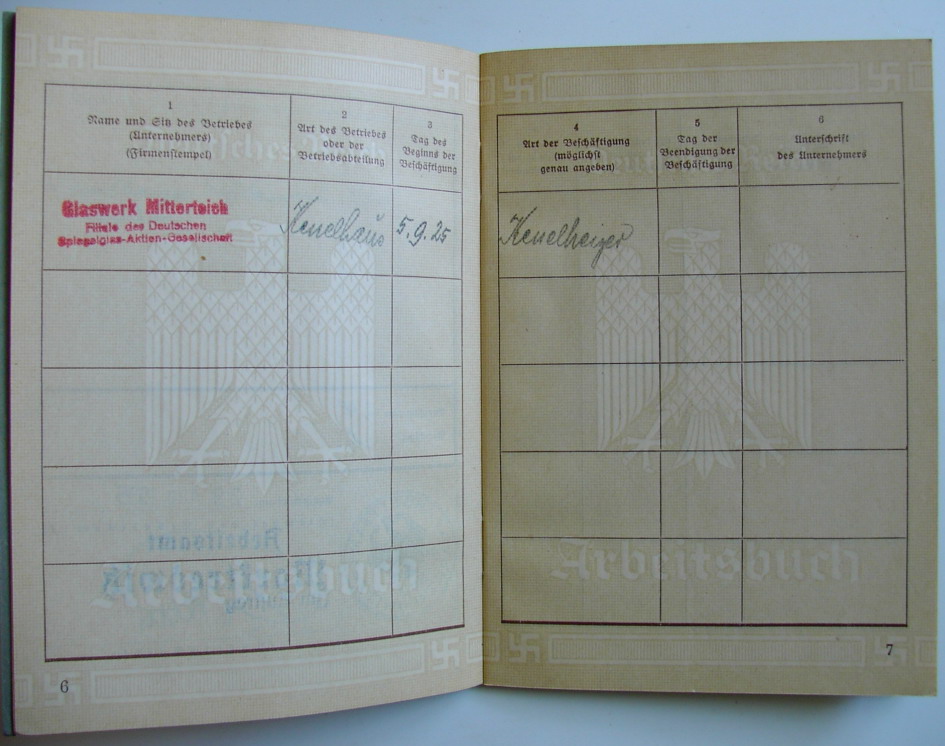 1
Name und Sitz des Betriebes
(Unternehmers)
(Firmenstempel)
2
Art des Betriebes
oder der
Betriebsabteilung
3
Tag des
Beginns der
Beschäftigung
Glaswerk Mitterteich
Filiale des Deutschen
Spiegelglas-Aktien-Gesellschaft
Kesselhaus
5.9.25
Arbeitsamt
Arbeitsbuch
6
4
Art der Beschäftigung
(möglichst
genau angeben)
5
Tag der
Beendigung der
Beschäftigung
6
Unterschrift
des Unternehmers
Kesselheizer
Arbeitsbuch
7